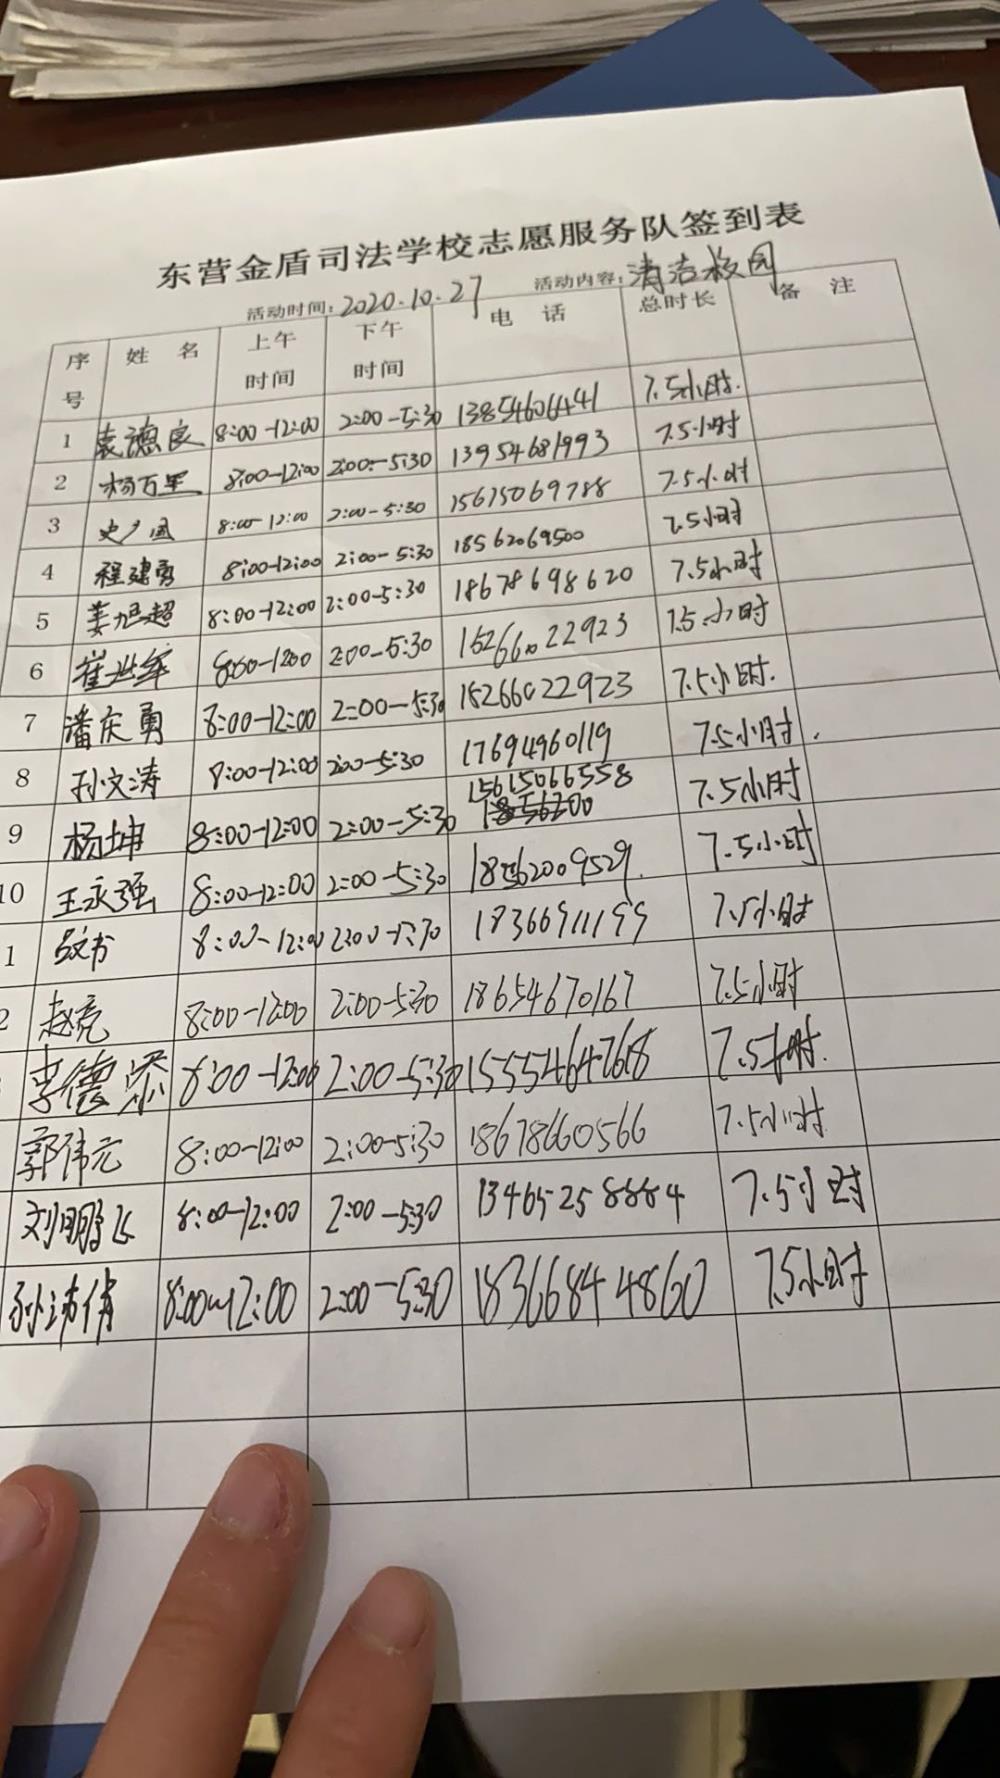 东营金盾司法学校志愿服务队签到表
活动时间:2020.10.27 活动内容:清洁校园
序号 姓 名 上午时间 下午时间 电 话 总时长 备 注
1 袁德良 8:00-12:00 2:00-5:30 13854606441 7.5小时.
2 杨万里 8:00-12:00 2:00-5:30 13954681993 7.5小时
3 8:00-12:00 2:00-5:30 15615069788 7.5小时
4 程建勇 8:00-12:00 2:00-5:30 18562069500 7.5小时
5 姜旭超 8:00-12:00 2:00-5:30 18678698620 7.5小时
6 崔 8:00-1200 2:00-5:30 15266022923 7.5小时
7 潘庆勇 8:00-12:00 2:00-5:30 15266022923 7.5小时.
8 孙文涛 8:00-12:00 2:00-5:30 17694960119 7.5小时.
9 杨坤 8:00-12:00 2:00-5:30 15615066558 7.5小时
10 王永强 8:00-12:00 2:00-5:30 18562009529. 7.5小时
1 8:00-12:00 2:00-5:30 18366911199 7.5小时
2 赵亮 8:00-12:00 2:00-5:30 18654670167 7.5小时
李德 8:00-12:00 2:00-5:30 15552647618 7.5小时.
郭伟元 8:00-12:00 2:00-5:30 18678660566 7.5小时
刘鹏飞 8:00-12:00 2:00-5:30 13465258884 7.5小时
孙 8:00-12:00 2:00-5:30 18366844860 7.5小时